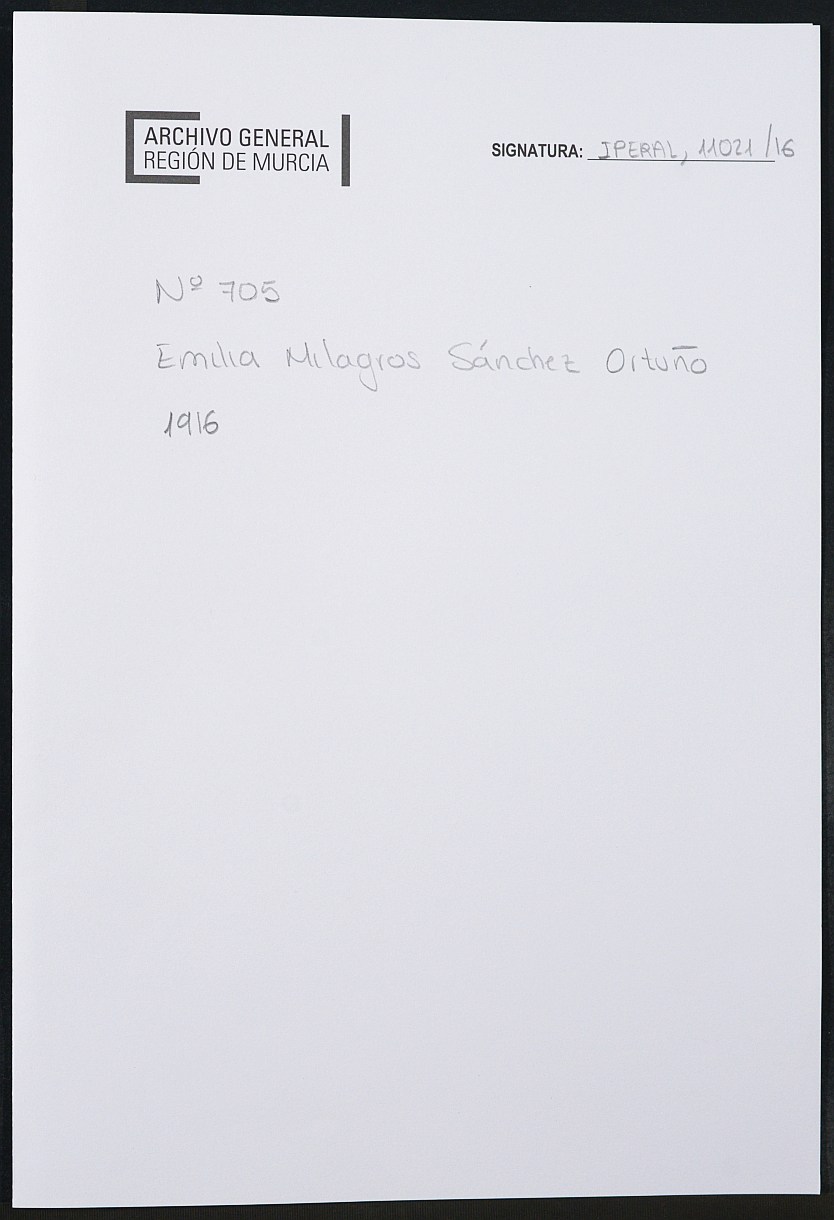 ARCHIVO GENERAL
REGIÓN DE MURCIA
SIGNATURA: IPERAL, 11021/16
Nº 705
Emilia Milagros Sánchez Ortuño
1916